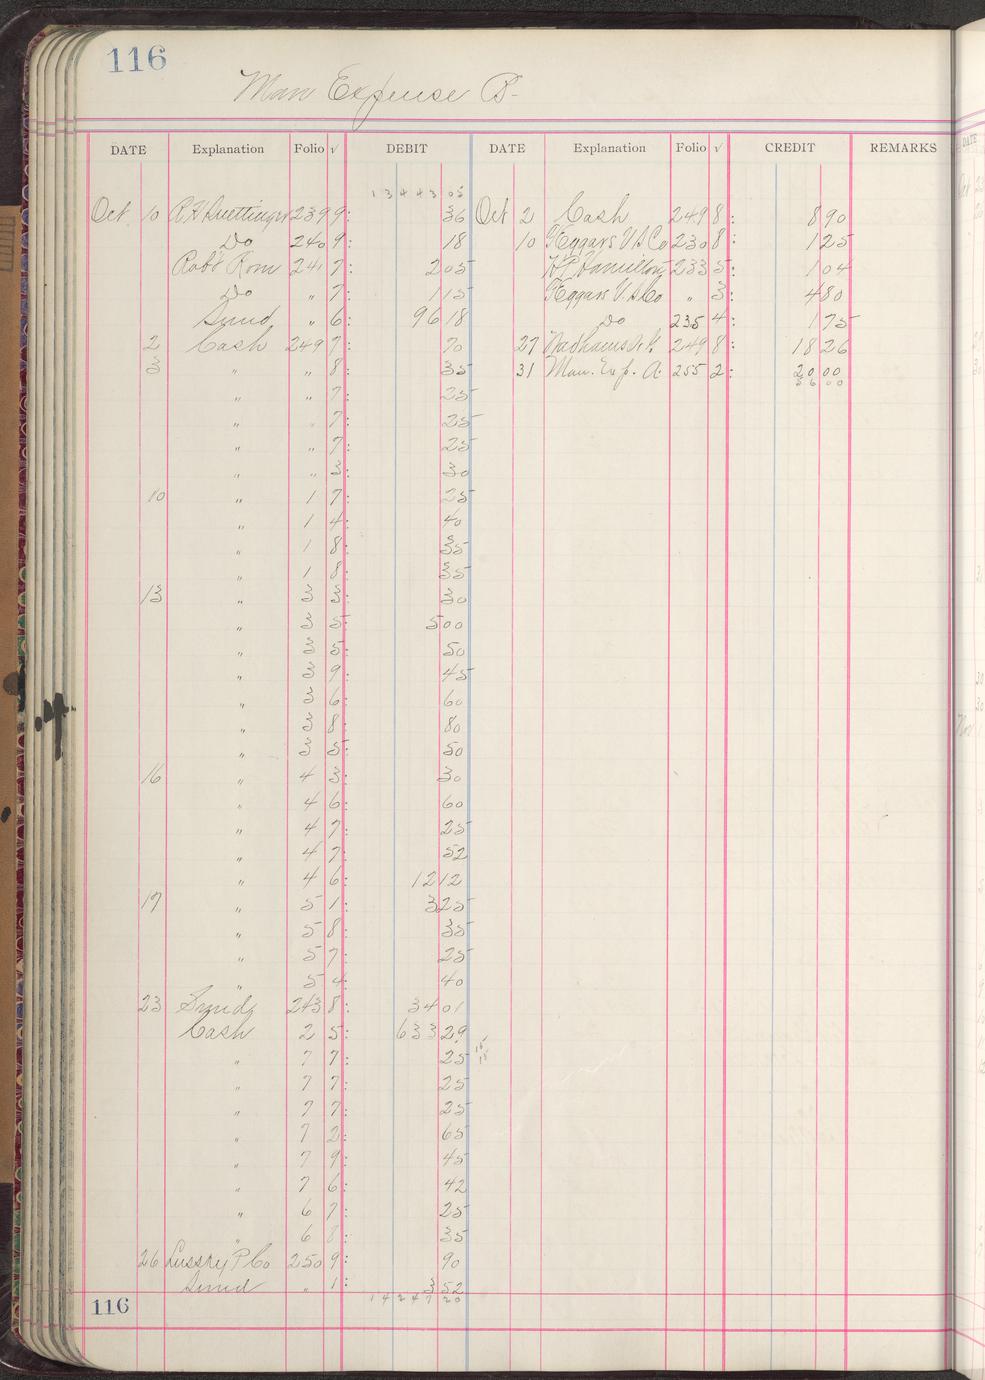 116
Man Expense B-
DATE Explanation Folio √ DEBIT DATE Explanation Folio √ CREDIT REMARKS
13443 05
Oct 10 239 9: 36 Oct 2 Cash 249 8: 8 90
Do 240 9: 18 10 230 8: 1 25
Rob't Rom 241 7: 2 05 H P Hamilton 233 5: 1 04
Do " 7: 1 15 " 3: 4 80
Sund " 6: 96 18 Do 235 4: 1 75
2 Cash 249 7: 70 27 249 8: 18 26
3 " " 8: 35 31 Man. Exp. A. 255 2: 20 00
56 00
" " 7: 25
" " 7: 25
" " 7: 25
" " 3: 30
10 " 1 7: 25
" 1 4: 40
" 1 8: 35
" 1 8: 35
13 " 3 3: 30
" 3 5: 5 00
" 3 5: 50
" 3 9: 45
" 3 6: 60
" 3 8: 80
" 3 5: 50
16 " 4 3: 30
" 4 6: 60
" 4 7: 25
" 4 7: 52
" 4 6: 12 12
17 " 5 1: 3 25
" 5 8: 35
" 5 7: 25
" 5 4: 40
23 Sunds 243 8: 34 01
Cash 2 5: 633 29
" 7 7: 25
" 7 7: 25
" 7 7: 25
" 7 2: 65
" 7 9: 45
" 7 6: 42
" 6 7: 25
" 6 8: 35
26 P Co 250 9: 90
Sund " 1: 3 52
116 14247 20